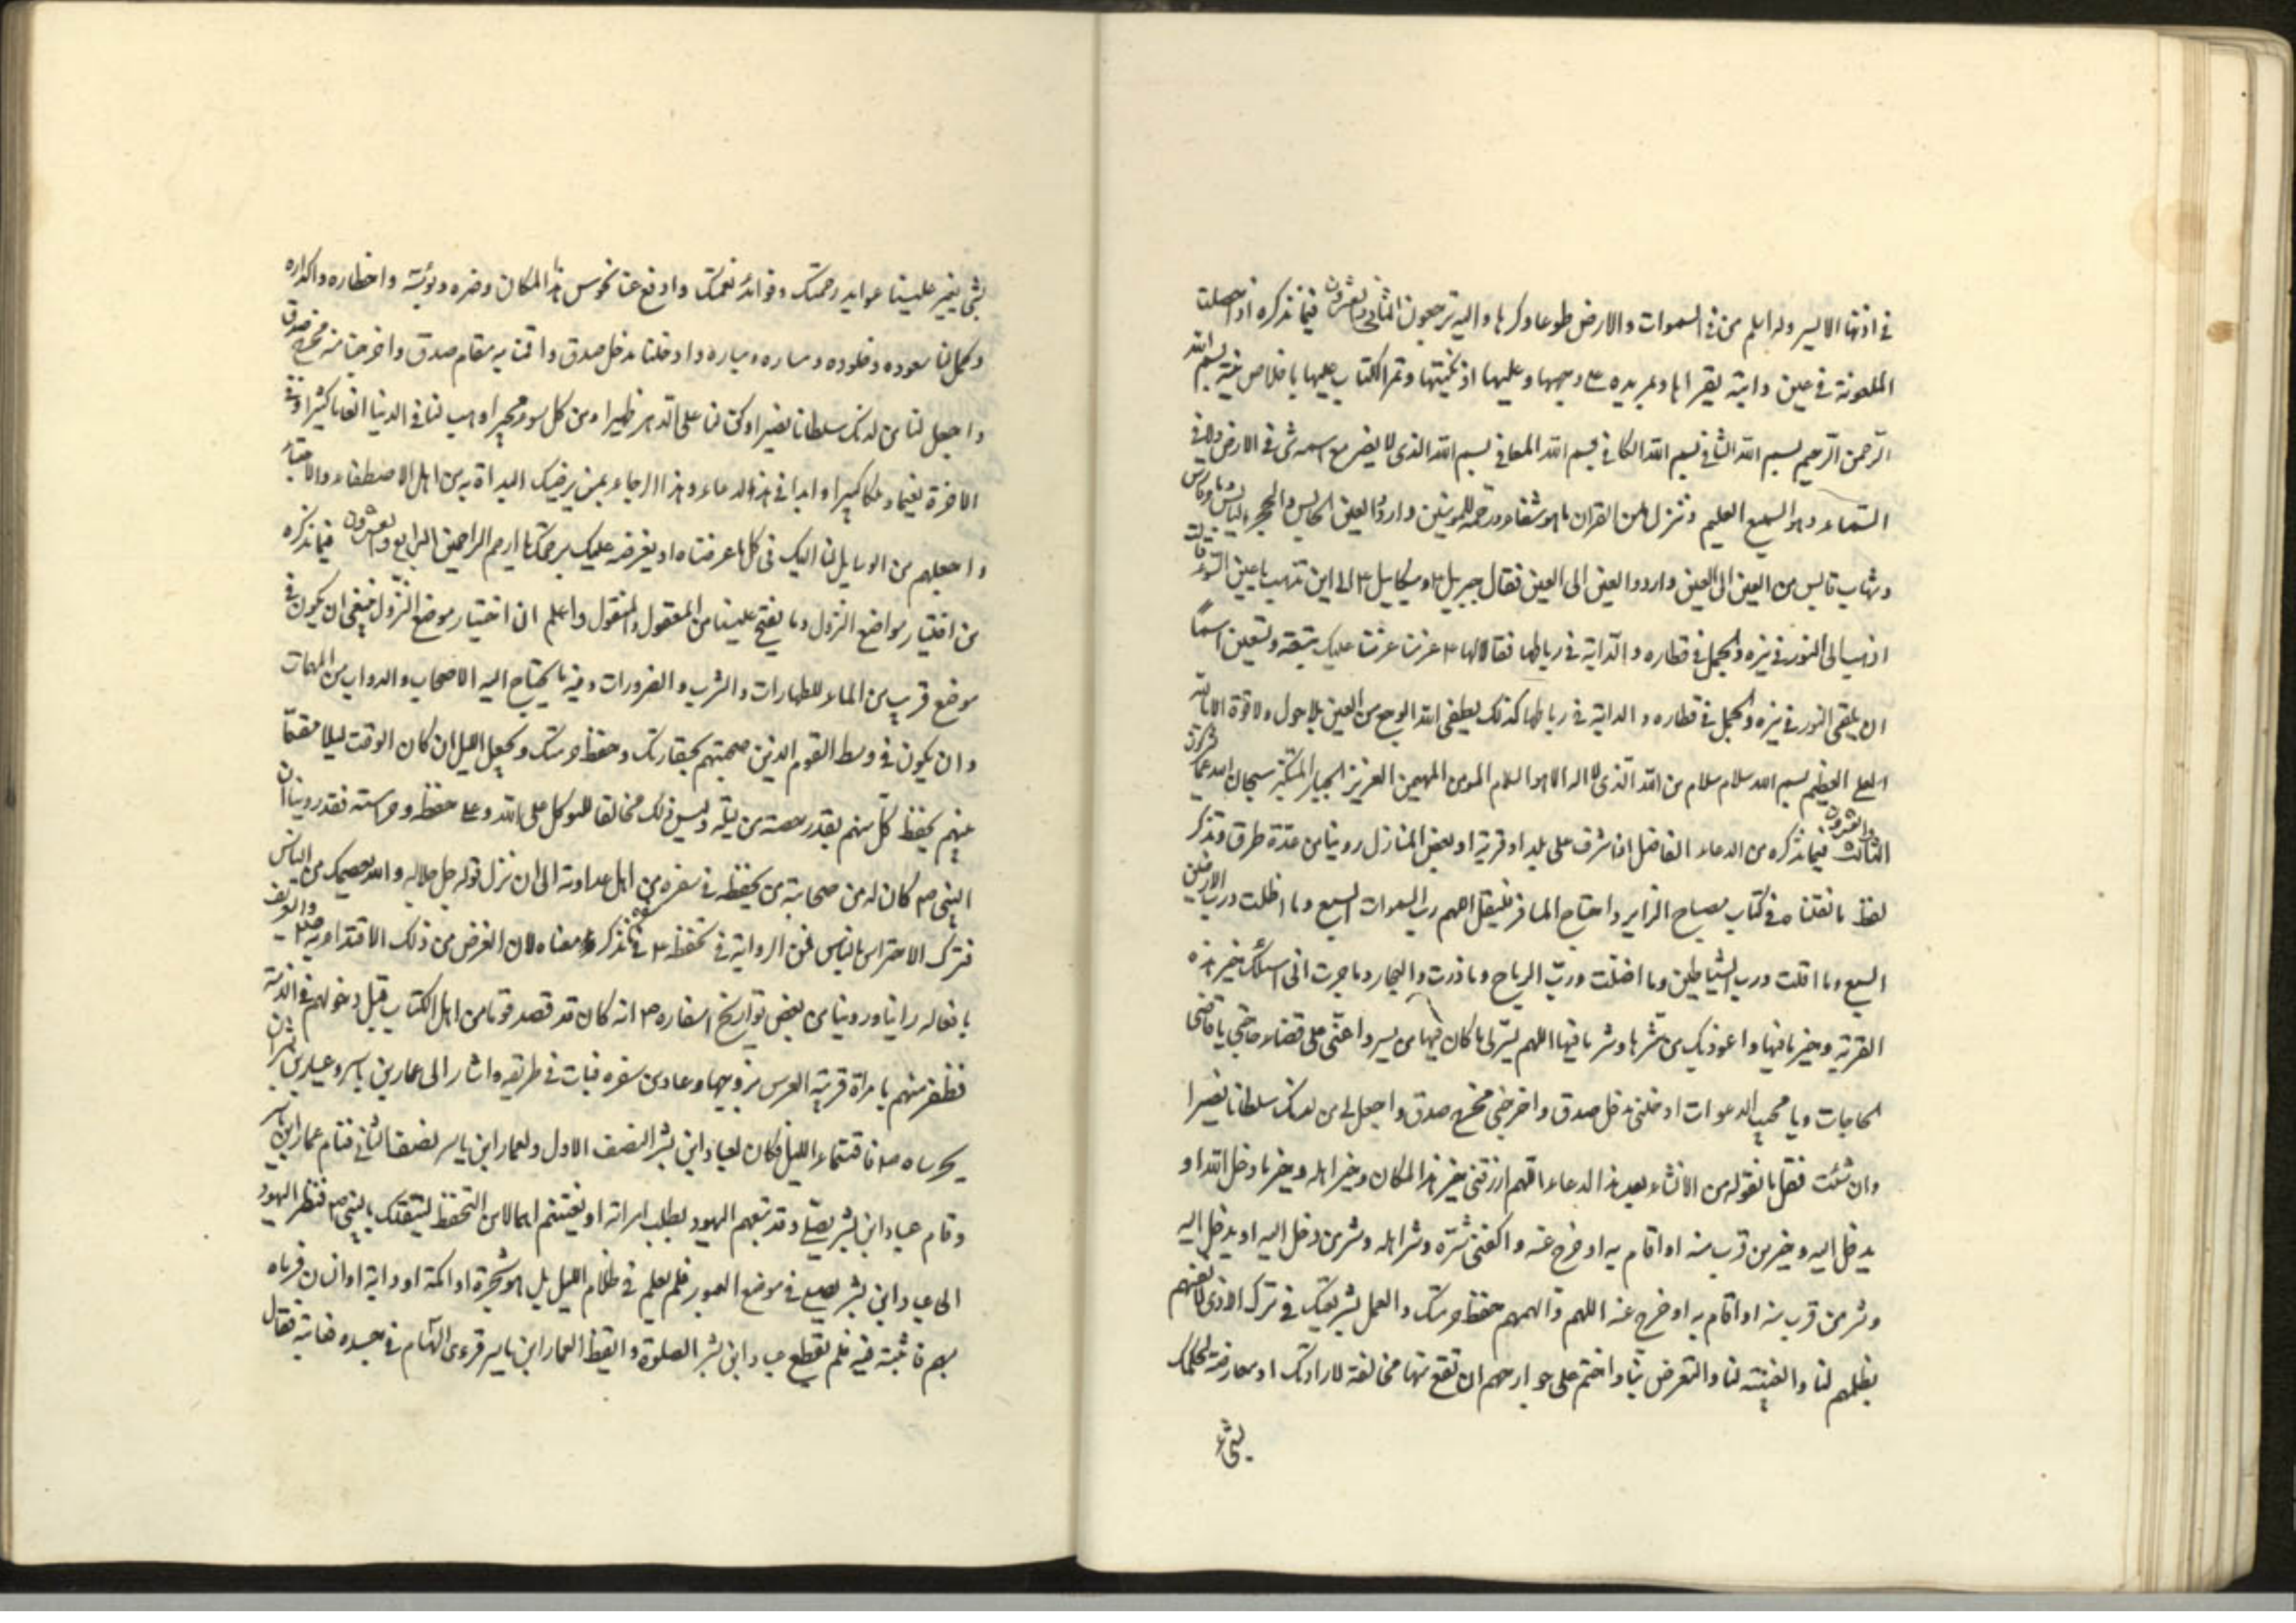 في اذنها الايسر وله اسلم من في السموات والارض طوعا وكرها واليه ترجعون الثاني والعشرون فيما نذكره اذا حصلت
الملعونة في عين دابته يقرأها ويمر يده على وجهها وعليها او يكتبها ويمر الكتاب عليها باخلاص نية بسم الله
الرحمن الرحيم بسم الله الشافي بسم الله الكافي بسم الله المعافي بسم الله الذي لا يضر مع اسمه شي في الارض ولا في
السماء وهو السميع العليم وننزل من القران ما هو شفاء ورحمة للمؤمنين واردد العين الحابس والحجر اليابس وماء فارس
وشهاب قابس من العين الى العين واردد العين الى العين فقال جبريل وميكاييل الى اين تذهب يا عين السوء قالت
اذهب الى الثور في نيره والجمل في قطاره والدابة في رباطها فقالا لها عزمنا عليك بتسعة وتسعين اسمًا
ان يلقى الثور في نيره والجمل في قطاره والدابة في رباطها كذلك يطفى الله الوجع من العين بلا حول ولا قوة الا بالله
العلي العظيم بسم الله سلام سلام من الله الذي لا اله الا هو السلام المومن المهيمن العزيز الجبار المتكبر سبحان الله عما يشركون
الثالث والعشرون فيما نذكره من الدعاء الفاضل اذا اشرف على بلد او قرية او بعض المنازل روينا من عدة طرق ونذكر
لفظ ما نقلناه في كتاب مصباح الزاير وجناح المسافر فليقل اللهم رب السموات السبع وما اظلت ورب الارضين
السبع وما اقلت ورب الشياطين وما اضلت ورب الرياح وما ذرت والبحار وما جرت اني اسئلك خير هذه
القرية وخير ما فيها واعوذ بك من شرها وشر ما فيها اللهم يسر لي ما كان فيها من يسر واعني على قضاء حاجتي يا قاضي
الحاجات ويا مجيب الدعوات ادخلني مدخل صدق واخرجني مخرج صدق واجعل لي من لدنك سلطانا نصيرا
وان شئت فقل ما نقوله من الانشاء بعد هذا الدعاء اللهم ارزقني خير هذا المكان وخير اهله وخير ما دخل اليه او
يدخل اليه وخير من قرب منه او اقام به او خرج عنه واكفني شره وشر اهله وشر من دخل اليه او يدخل اليه
وشر من قرب منه او اقام به او خرج عنه اللهم والهمهم حفظ حرمتك والعمل بشريعتك في ترك الاذى لانفسهم
بظلمهم لنا والغيبة لنا والتعرض بنا واختم على جوارحهم ان تقع منها مخالفة لارادتك او معارضة لحكمك
بشيء
بشي يغير علينا عوايد رحمتك وفوائد نعمتك وادفع عنا نحوس هذا المكان وضره وبؤسه واخطاره واكداره
وكمل لنا سعوده وخلوده ومساره ومباره وادخلنا مدخل صدق واقمنا به مقام صدق واخرجنا منه مخرج صدق
واجعل لنا من لدنك سلطانا نصيرا وكن لنا على الدهر ظهيرا ومن كل سوء مجيرا وهب لنا في الدنيا انعاما كثيرا وفي
الاخرة نعيما وملكا كبيرا وابدا في هذا الدعاء وهذا الرجاء بمن يرضيك البداة به من اهل الاصطفاء والاجتباء
واجعلهم من الوسايل لنا اليك في كلما عرضناه او يعرضه عليك برحمتك يا ارحم الراحمين الرابع والعشرون فيما نذكره
من اختيار مواضع النزول وما يفتح علينا من المعقول والمنقول واعلم ان اختيار موضع النزول فينبغي ان يكون في
موضع قريب من الماء للطهارات والشرب والضرورات وفيه ما يحتاج اليه الاصحاب والدواب من المهمات
وان يكون في وسط القوم الذين صحبتهم لخفارتك وحفظ حرمتك وتجعل الليل ان كان الوقت ليلا مقسما
عنهم يحفظ كل منهم بقدر حصته من ليلته وليس ذلك مخالفا للتوكل على الله وعلى حفظه وحراسته فقد روينا ان
النبي كان له من صحابته من يحفظه في سفره من اهل عداوته الى ان نزل قوله جل جلاله والله يعصمك من الناس
فترك الاحتراس بالناس فمن الرواية في تحفظه في سفره ما نذكر معناه لان الغرض من ذلك الاقتداء به
بافعاله راينا وروينا من بعض تواريخ اسفاره انه كان قد قصد قوما من اهل الكتاب قبل دخولهم في الذمة
فظفر منهم بامراة قريبة العرس بزوجها وعاد من سفره فبات في طريقه واشار الى عمار بن ياسر وعباد بن بشر ان
يحرساه فاقتسما الليل فكان لعباد ابن بشر النصف الاول ولعمار ابن ياسر نصف الثاني فنام عمار ابن ياسر
وقام عباد ابن بشر يصلي وقد تبعهم اليهود يطلب امراته او يغتنم اهمالا من التحفظ ليفتك بالنبي فنظر اليهود
الى عباد ابن بشر يصلي في موضع العبور فلم يعلم في ظلام الليل هل هو شجرة او اكمة او دابة او انسان فرماه
بسهم فاثبته فيه فلم يقطع عباد ابن بشر الصلوة وايقظ العمار ابن ياسر فراى السهام في جسده فعاتبه فقال